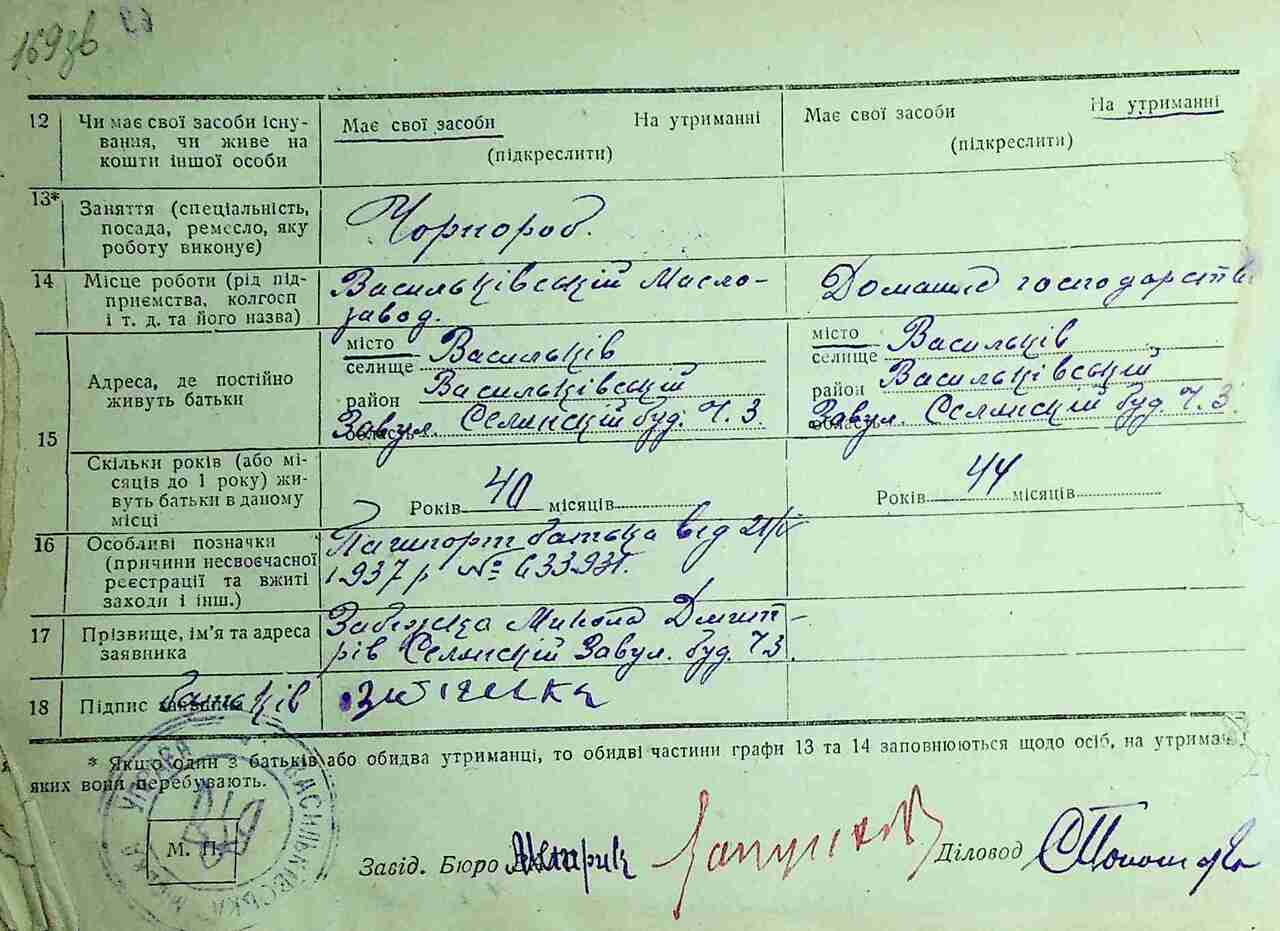 169зв
12
Чи має свої засоби існу-
вання, чи живе на
кошти іншої особи
Має свої засоби На утриманні
(підкреслити)
Має свої засоби На утриманні
(підкреслити)
13*
Заняття (спеціальність,
посада, ремесло, яку
роботу виконує)
Чорнороб.
14
Місце роботи (рід під-
приємства, колгосп
і т. д. та його назва)
Васильківській Масло-
завод.
Домашнє господарств
15
Адреса, де постійно
живуть батьки
місто
селище Васильків
район Васильківський
область Завул. Селянскій буд. Ч. 3.
місто
селище Васильків
район Васильківський
область Завул. Селянскій буд. Ч. 3.
Скільки років (або мі-
сяців до 1 року) жи-
вуть батьки в даному
місці
Років 40 місяців
Років 44 місяців
16
Особливі позначки
(причини несвоєчасної
реєстрації та вжиті
заходи і інш.)
Пашпорт батька від 21/V
1937 р № 633931.
17
Прізвище, ім'я та адреса
заявника
Микола Дмит-
рів Селянскій Завул. буд. Ч 3.
18
Підпис батьків
* Якщо один з батьків або обидва утриманці, то обидві частини графи 13 та 14 заповнюються щодо осіб, на утриман
яких вони перебувають.
УПРАВА ВАСИЛЬКІВСЬКА МІСЬКА
М. П.
Завід. Бюро
Діловод